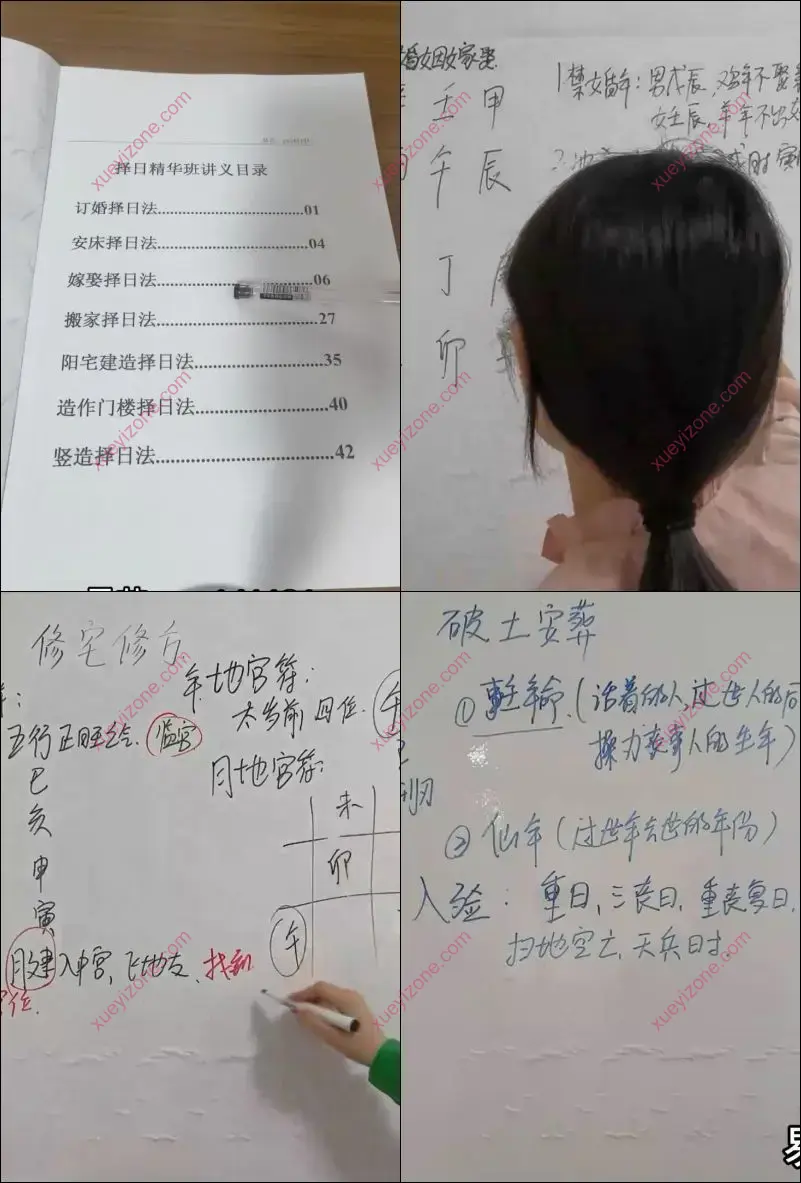 择日精华班讲义目录
订婚择日法....................................01
安床择日法....................................04
嫁娶择日法....................................06
搬家择日法....................................27
阳宅建造择日法..............................35
造作门楼择日法..............................40
竖造择日法....................................42
婚姻嫁娶
1禁婚年：男戊辰，鸡年不娶
女壬辰，羊年不出
壬 甲
午 辰
丁
卯
修宅修方
年地官符：
太岁前四位.
五行正旺之气. 监宫
月地官符：
巳
亥
申
寅
未
卯
午
月建入中宫，飞地支，找到
位.
破土安葬
① 事主年命.（活着的人，过世人的同
操力丧事人的生年）
② 仙年（过世年去世的年份）
入殓：重日，三丧日，重丧复日，
扫地空亡，天兵日时.
xueyizone.com
xueyizone.com
xueyizone.com
xueyizone.com
xueyizone.com
xueyizone.com
xueyizone.com
xueyizone.com
xueyizone.com
xueyizone.com
xueyizone.com
xueyizone.com